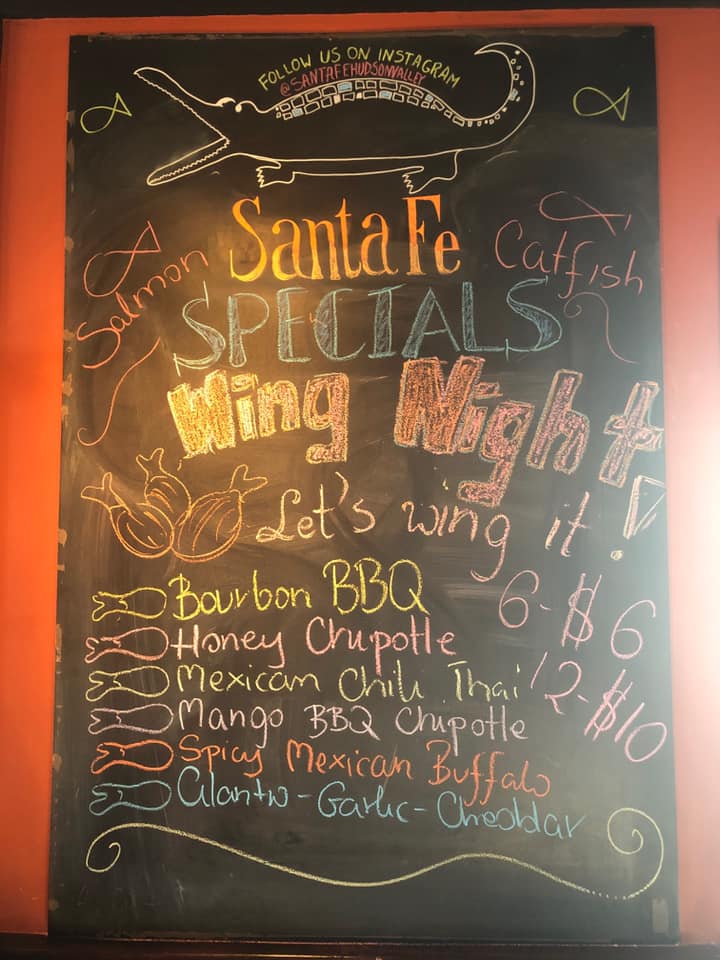 FOLLOW US ON INSTAGRAM
@SANTAFEHUDSONVALLEY
Santa Fe
Salmon
Catfish
SPECIALS
Wing Night!
Let's wing it
Bourbon BBQ
6-$6
Honey Chupotle
Mexican Chili Thai
12-$10
Mango BBQ Chupotle
Spicy Mexican Buffalo
Cilantro-Garlic-Cheddar